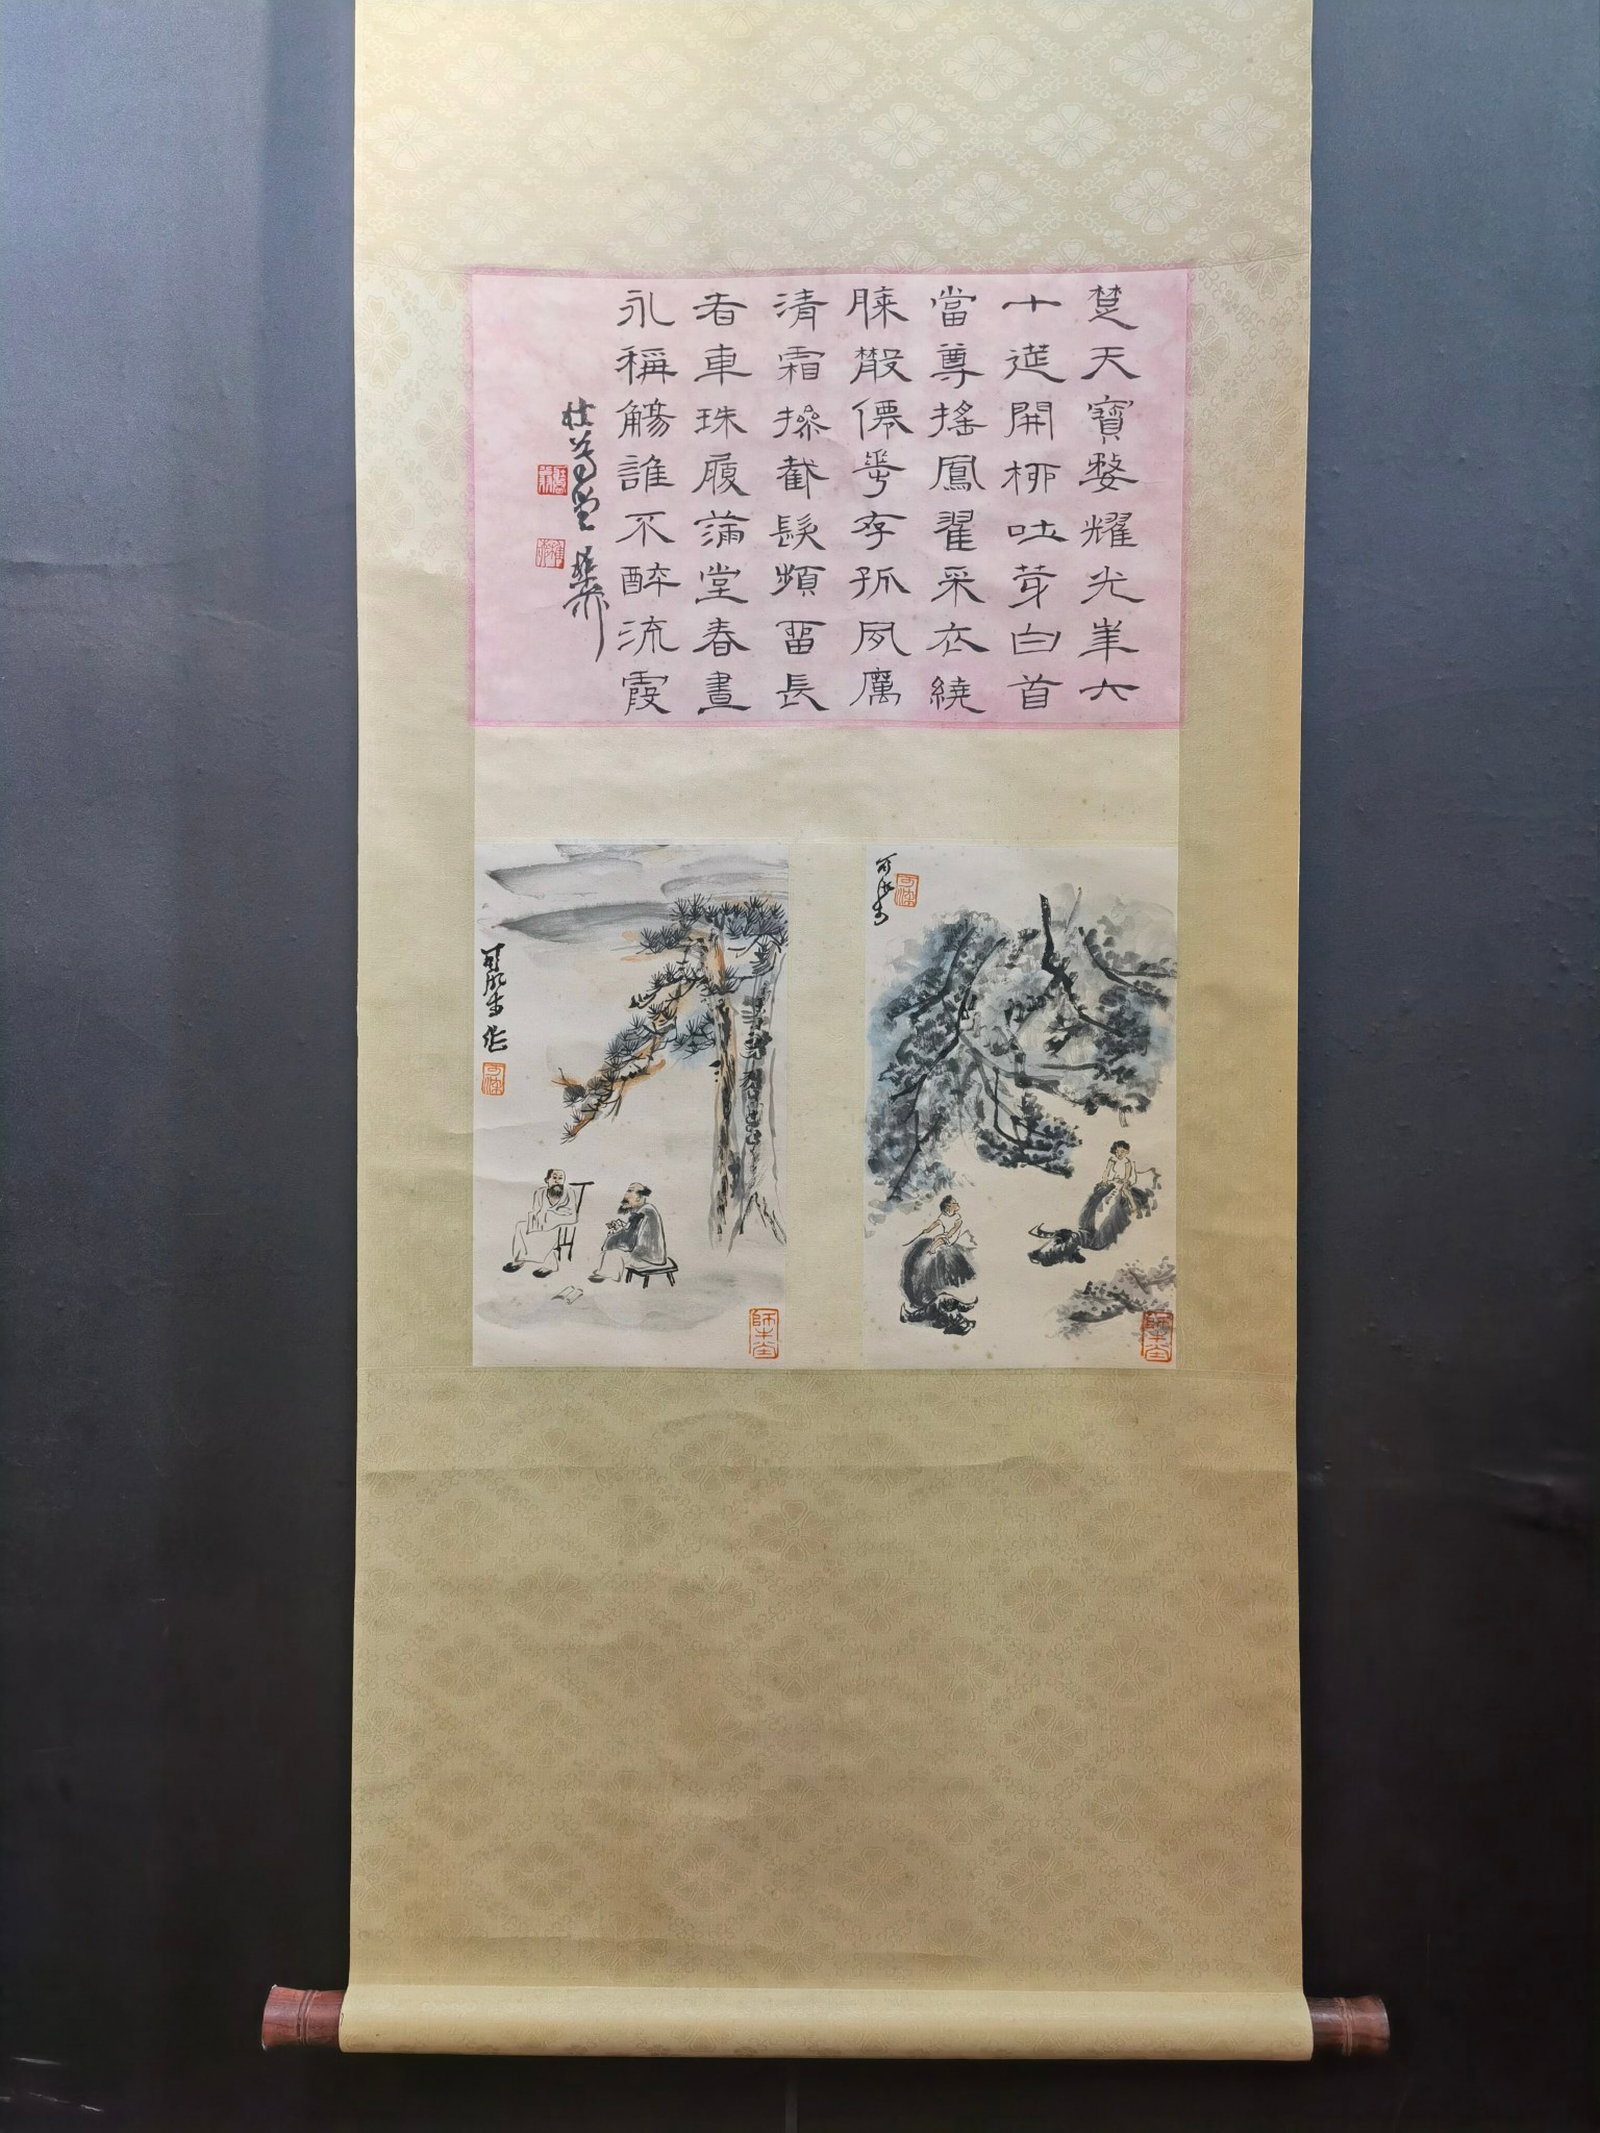 楚天寶婺耀光芒六
十筵開柳吐芽白首
當尊搖鳳翟采衣繞
膝散僊華存孤夙厲
清霜操截髮頻留長
者車珠履滿堂春晝
永稱觴誰不醉流霞
可染作
可染
師牛堂
可染
可染
師牛堂